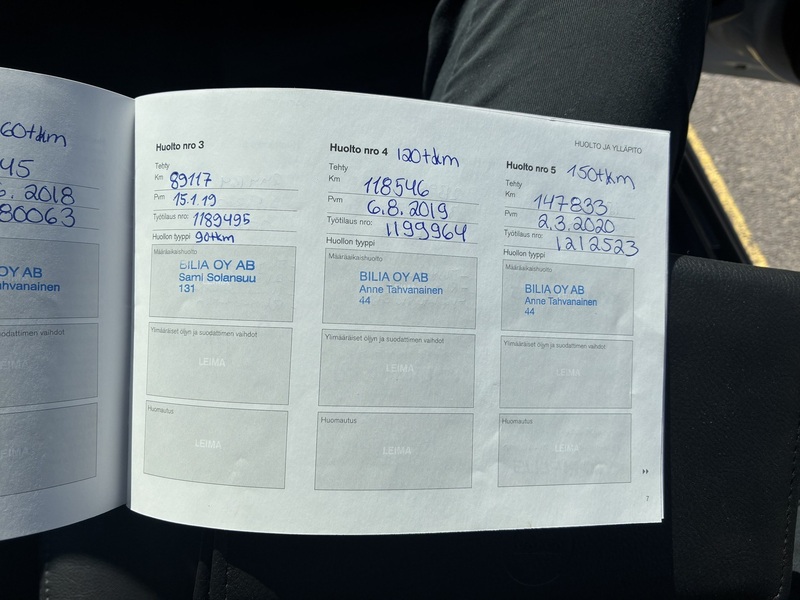 60tkm
45
6. 2018
80063
OY AB
ahvanainen
HUOLTO JA YLLÄPITO
Huolto nro 3
Tehty
Km 89117
Pvm 15.1.19
Työtilaus nro: 1189495
Huollon tyyppi 90tkm
Määräaikaishuolto
BILIA OY AB
Sami Solansuu
131
Ylimääräiset öljyn ja suodattimen vaihdot
LEIMA
Huomautus
LEIMA
Huolto nro 4 120tkm
Tehty
Km 118546
Pvm 6.8.2019
Työtilaus nro: 1199964
Huollon tyyppi
Määräaikaishuolto
BILIA OY AB
Anne Tahvanainen
44
Ylimääräiset öljyn ja suodattimen vaihdot
LEIMA
Huomautus
LEIMA
Huolto nro 5 150tkm
Tehty
Km 147833
Pvm 2.3.2020
Työtilaus nro: 1212523
Huollon tyyppi
Määräaikaishuolto
BILIA OY AB
Anne Tahvanainen
44
Ylimääräiset öljyn ja suodattimen vaihdot
LEIMA
Huomautus
LEIMA
7